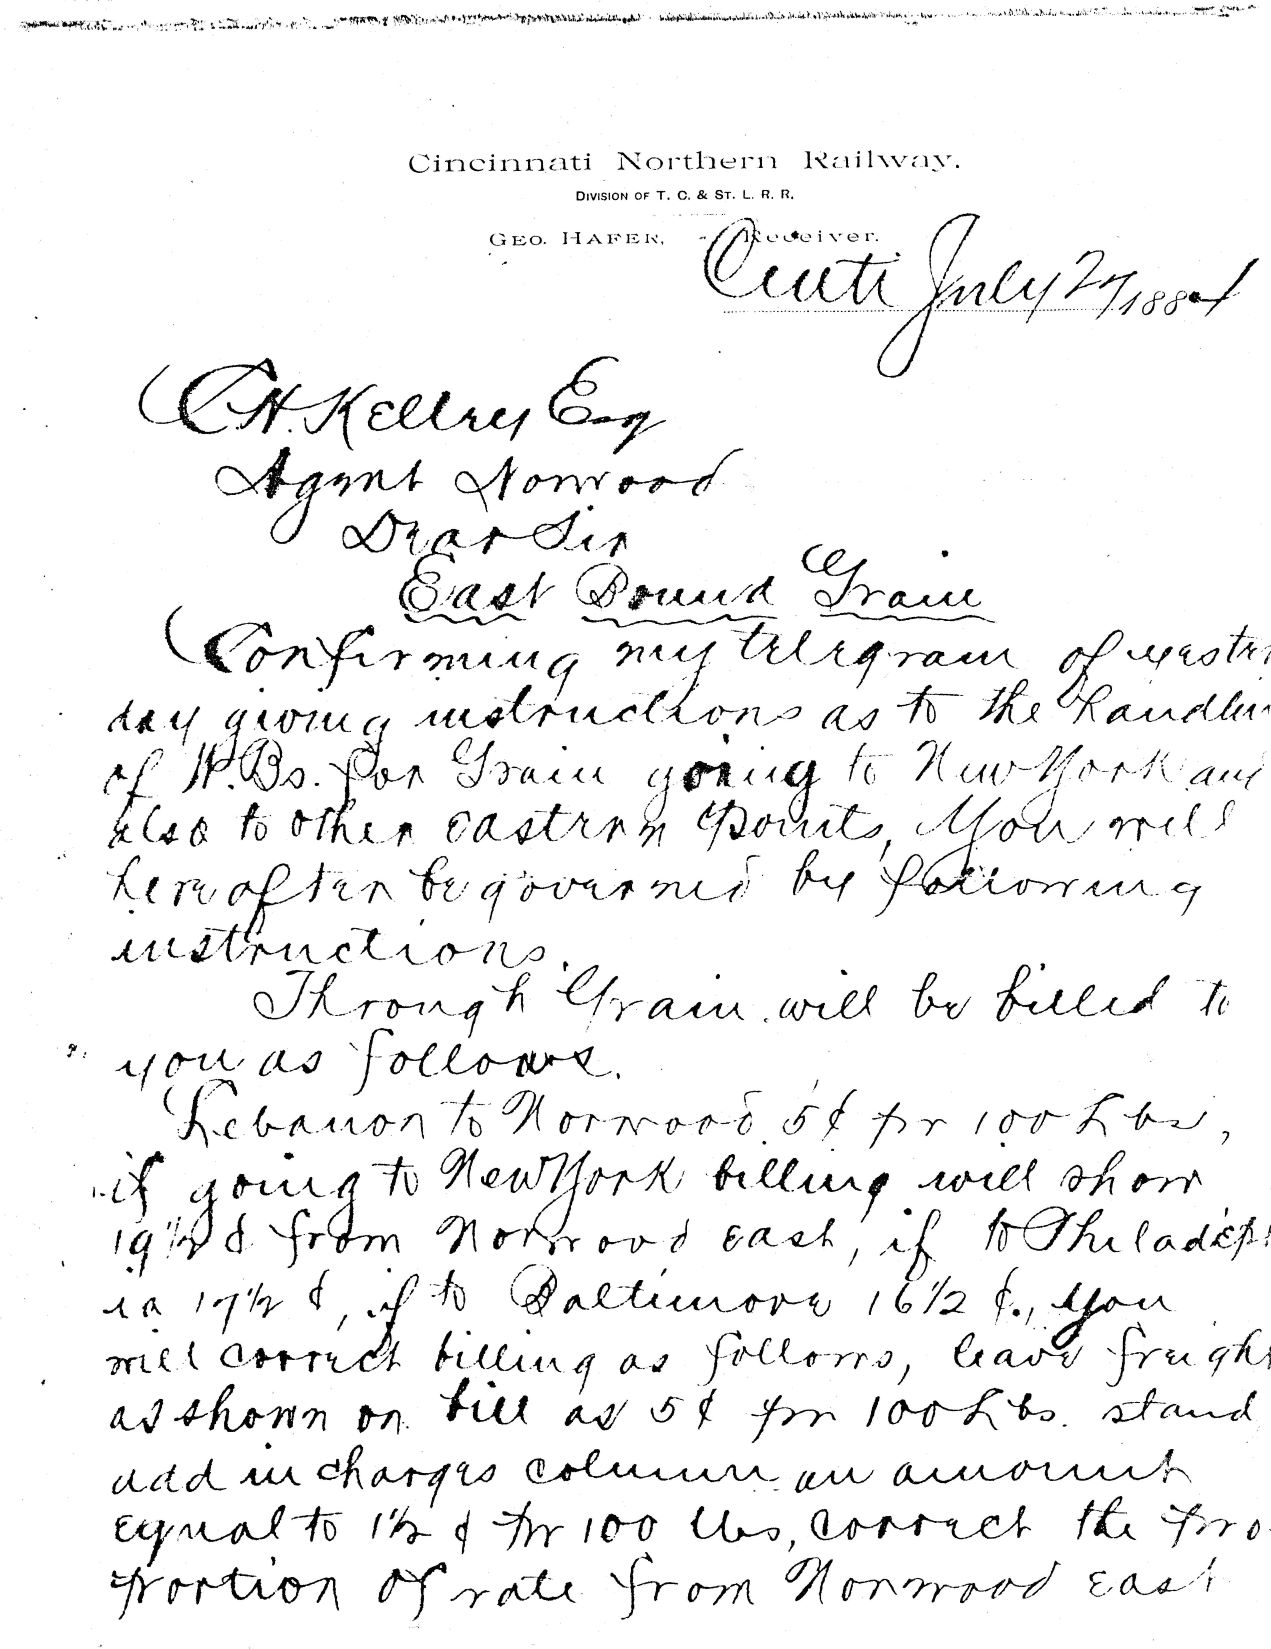 Cincinnati Northern Railway.
DIVISION OF T. C. & ST. L. R. R.
GEO. HAFER, - Receiver.
Cinti July 27 1884
C. H. Kelley Esq
Agent Norwood
Dear Sir
East Bound Grain
Confirming my telegram of yester
day giving instructions as to the handlin
of W.Bs. for Grain going to New York and
also to other eastern points, You will
hereafter be governed by following
instructions.
Through Grain will be billed to
you as follows.
Lebanon to Norwood 5¢ pr 100 Lbs,
if going to New York billing will show
19½ ¢ from Norwood east, if to Philadelph
ia 17½ ¢, if to Baltimore 16½ ¢., you
will correct billing as follows, leave freight
as shown on bill as 5¢ pr 100 Lbs. stand
add in charges column an amount
equal to 1½ ¢ pr 100 lbs, correct the pro
portion of rate from Norwood east